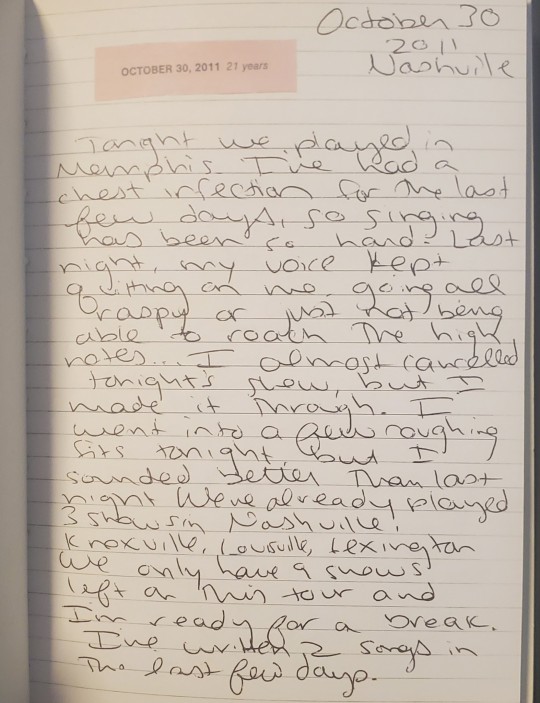 October 30
2011
Nashville
OCTOBER 30, 2011 21 years
Tonight we played in
Memphis. I've had a
chest infection for the last
few days, so singing
has been so hard. Last
night, my voice kept
quitting on me, going all
raspy or just not being
able to reach the high
notes... I almost cancelled
tonight's show, but I
made it through. I
went into a few coughing
fits tonight but I
sounded better than last
night. We've already played
3 shows in Nashville,
Knoxville, Louisville, Lexington
We only have 9 shows
left on this tour and
I'm ready for a break.
I've written 2 songs in
the last few days.